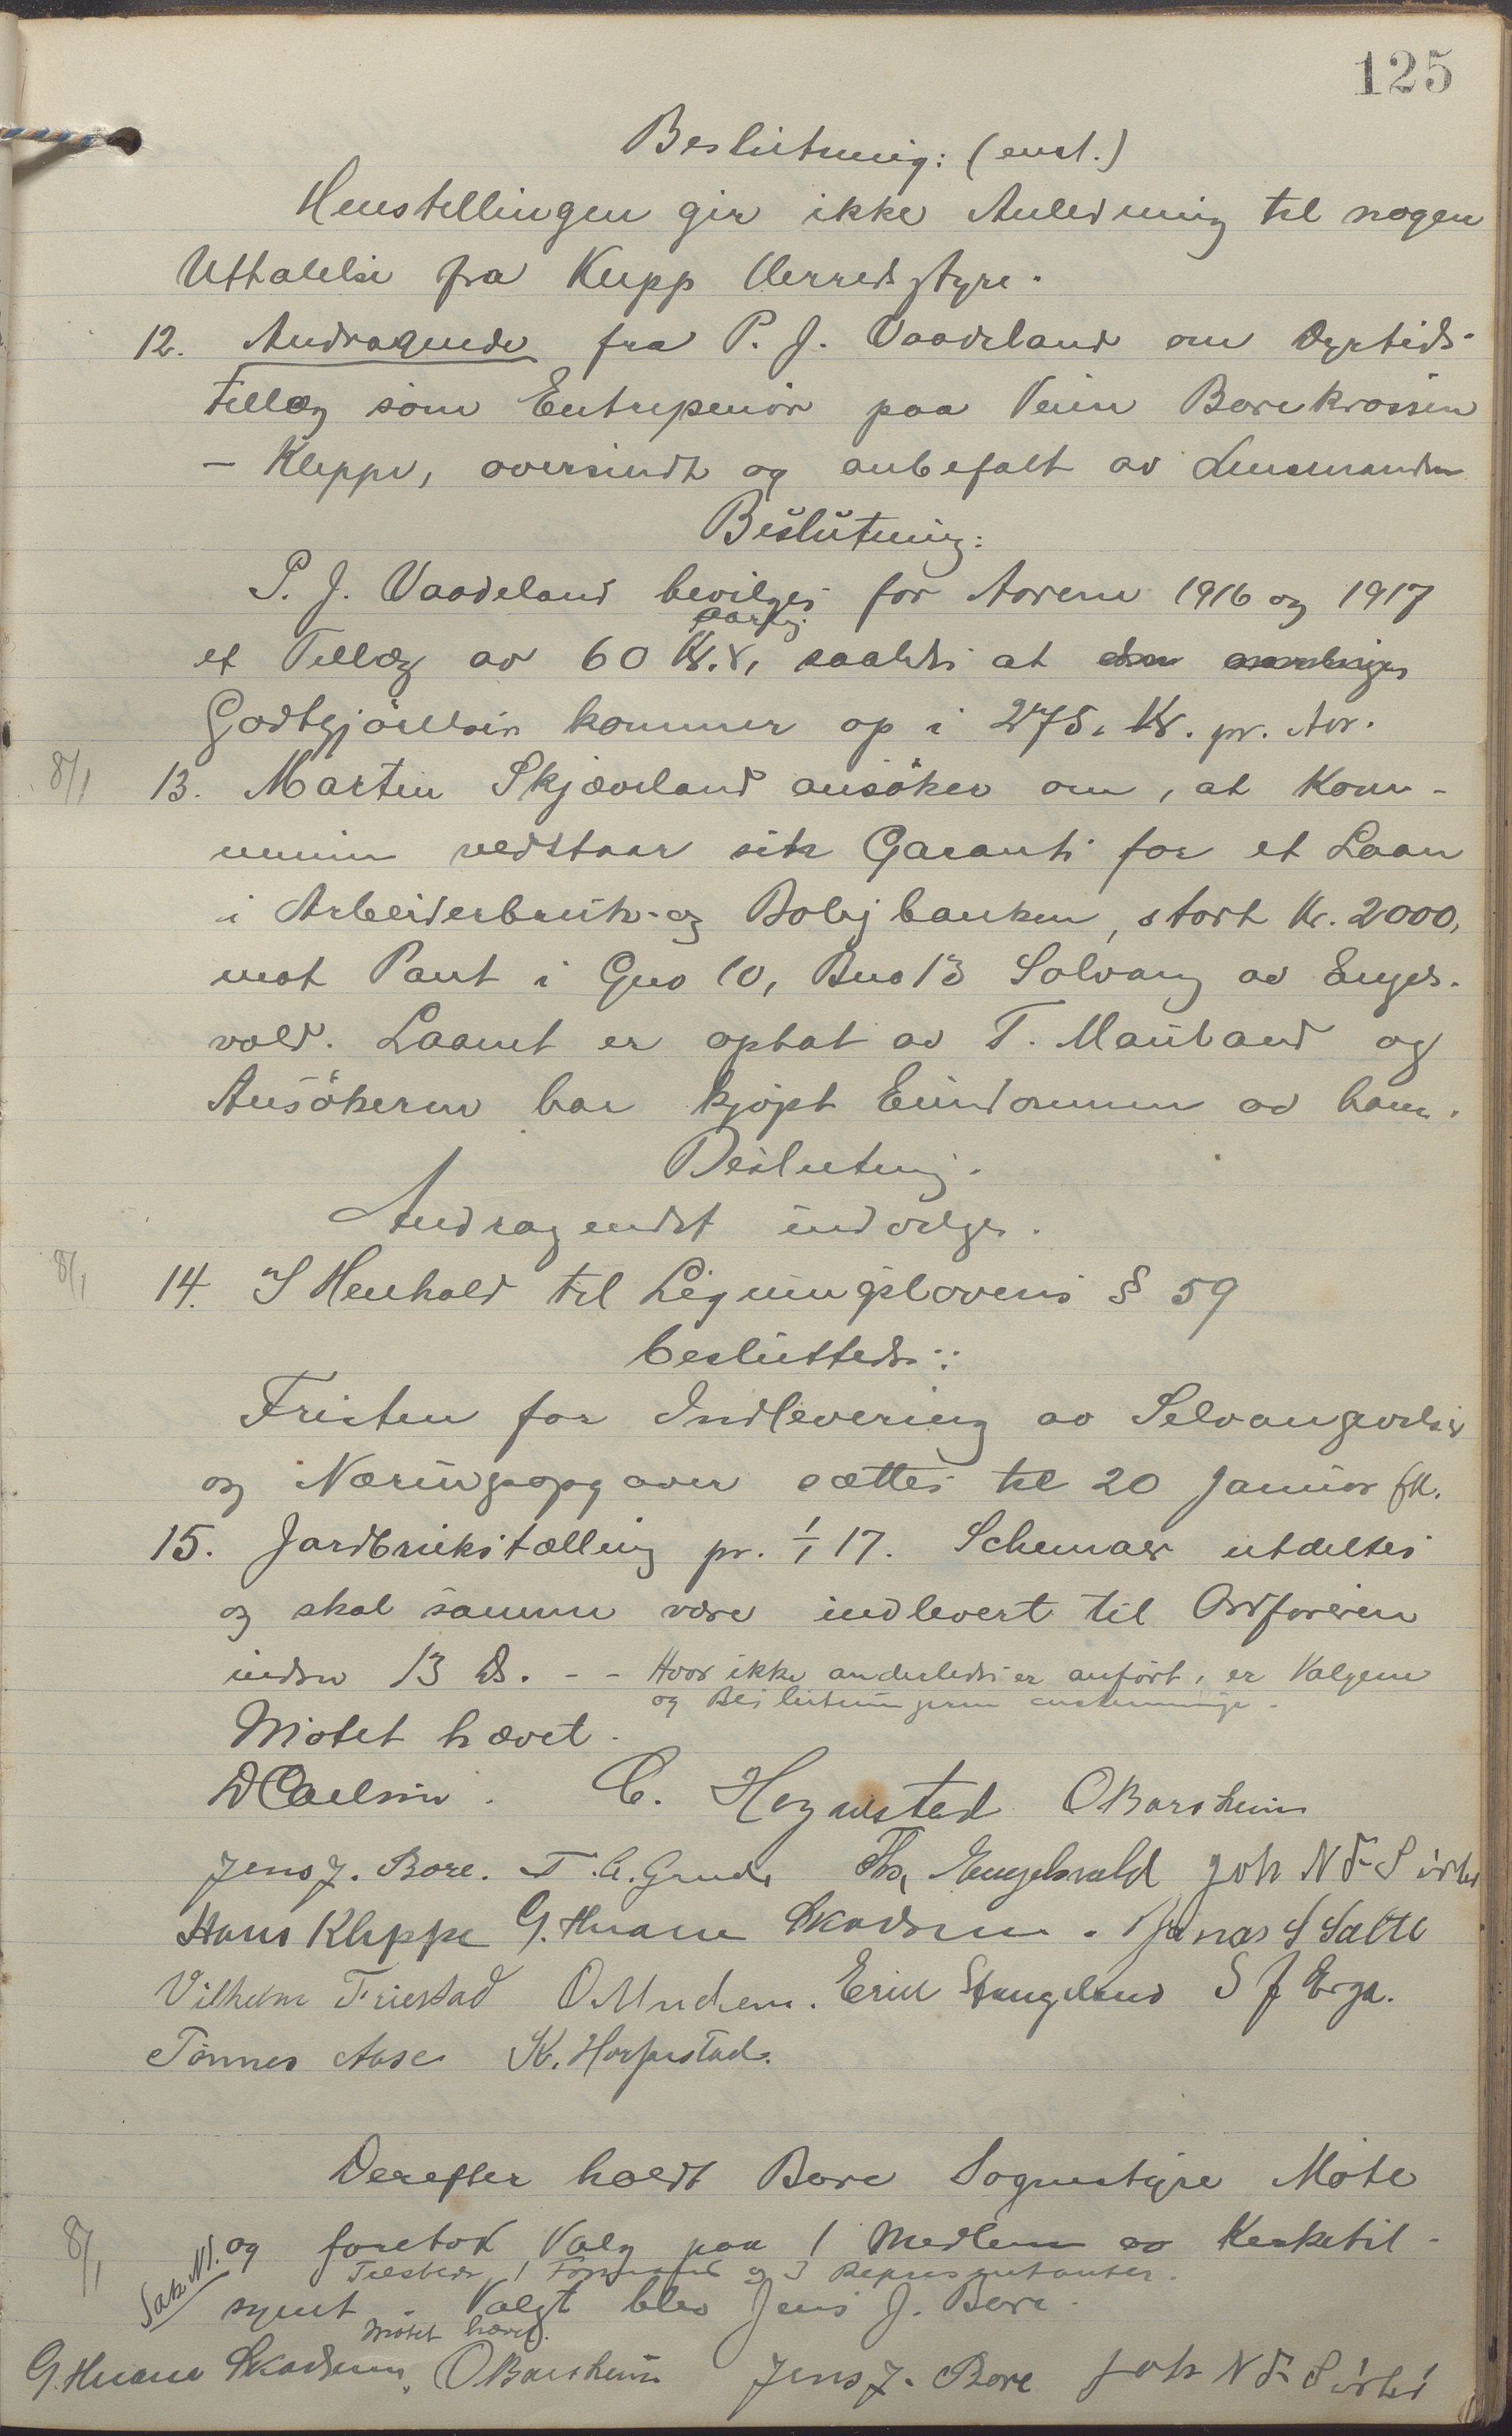 125
Beslutning: (enst.)
Henstillingen gir ikke Anledning til nogen
Uttalelse fra Klepp Herredsstyre.
12. Andragende fra P. J. Vaadeland om Dyrtids-
tillæg som Entreprenør paa Veien Borekrossen
- Kleppe, oversendt og anbefalt av Lensmanden
Beslutning:
P. J. Vaadeland bevilges for Aarene 1916 og 1917
aarlig
et Tillæg av 60 Kr., saaledes at
Godtgjörelsen kommer op i 275. Kr. pr. Aar.
8/1 13. Martin Skjæveland ansöker om, at Kom-
munen vedstaar sin Garanti for et Laan
i Arbeiderbruk- og Boligbanken, stort Kr. 2000,
mot Pant i Gno 10, Bno 13 Solvang av Engels-
vold. Laanet er optat av T. Mauland og
Ansökeren har kjöpt Eiendommen av ham.
Beslutning.
Andragendet indvilges.
8/1 14. I Henhold til Ligningslovens § 59
besluttedes:
Fristen for Indlevering av Selvangivelser
og Næringsopgaver sættes til 20 Januar
15. Jordbrukstælling pr. 1/1 17. Schemaer utdeltes
og skal samme være indlevert til Ordföreren
inden 13 ds. - - Hvor ikke anderledes er anfört, er Valgene
og Beslutningerne enstemmige.
Mötet hævet.
C. Hognestad O Borsheim
Jens J. Bore. T. A. Grude Th. Engelsvold Joh N F Sirevåg
Hans Kleppe G. Huane Skadsem. Jonas S Salte
Vilhelm Friestad O. Undem. Erik Stangeland S J Erga.
Tönnes Aase K. Horpestad.
Derefter holdt Bore Sognestyre Möte
8/1 Sak N1. og foretok Valg paa 1 Medlem av Kirketil-
Tilstede 1 Formand og 3 Repræsentanter.
synet. Valgt blev Jens J. Bore.
Mötet hævet.
G. Huane Skadsem, O Borsheim Jens J. Bore Joh N F